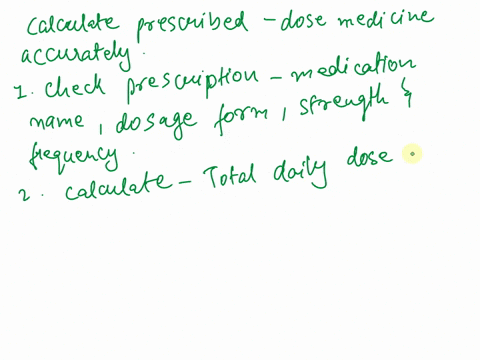 calculate prescribed - dose medicine
accurately.
1. check prescription - medication
name, dosage form, strength &
frequency.
2. calculate - Total daily dose